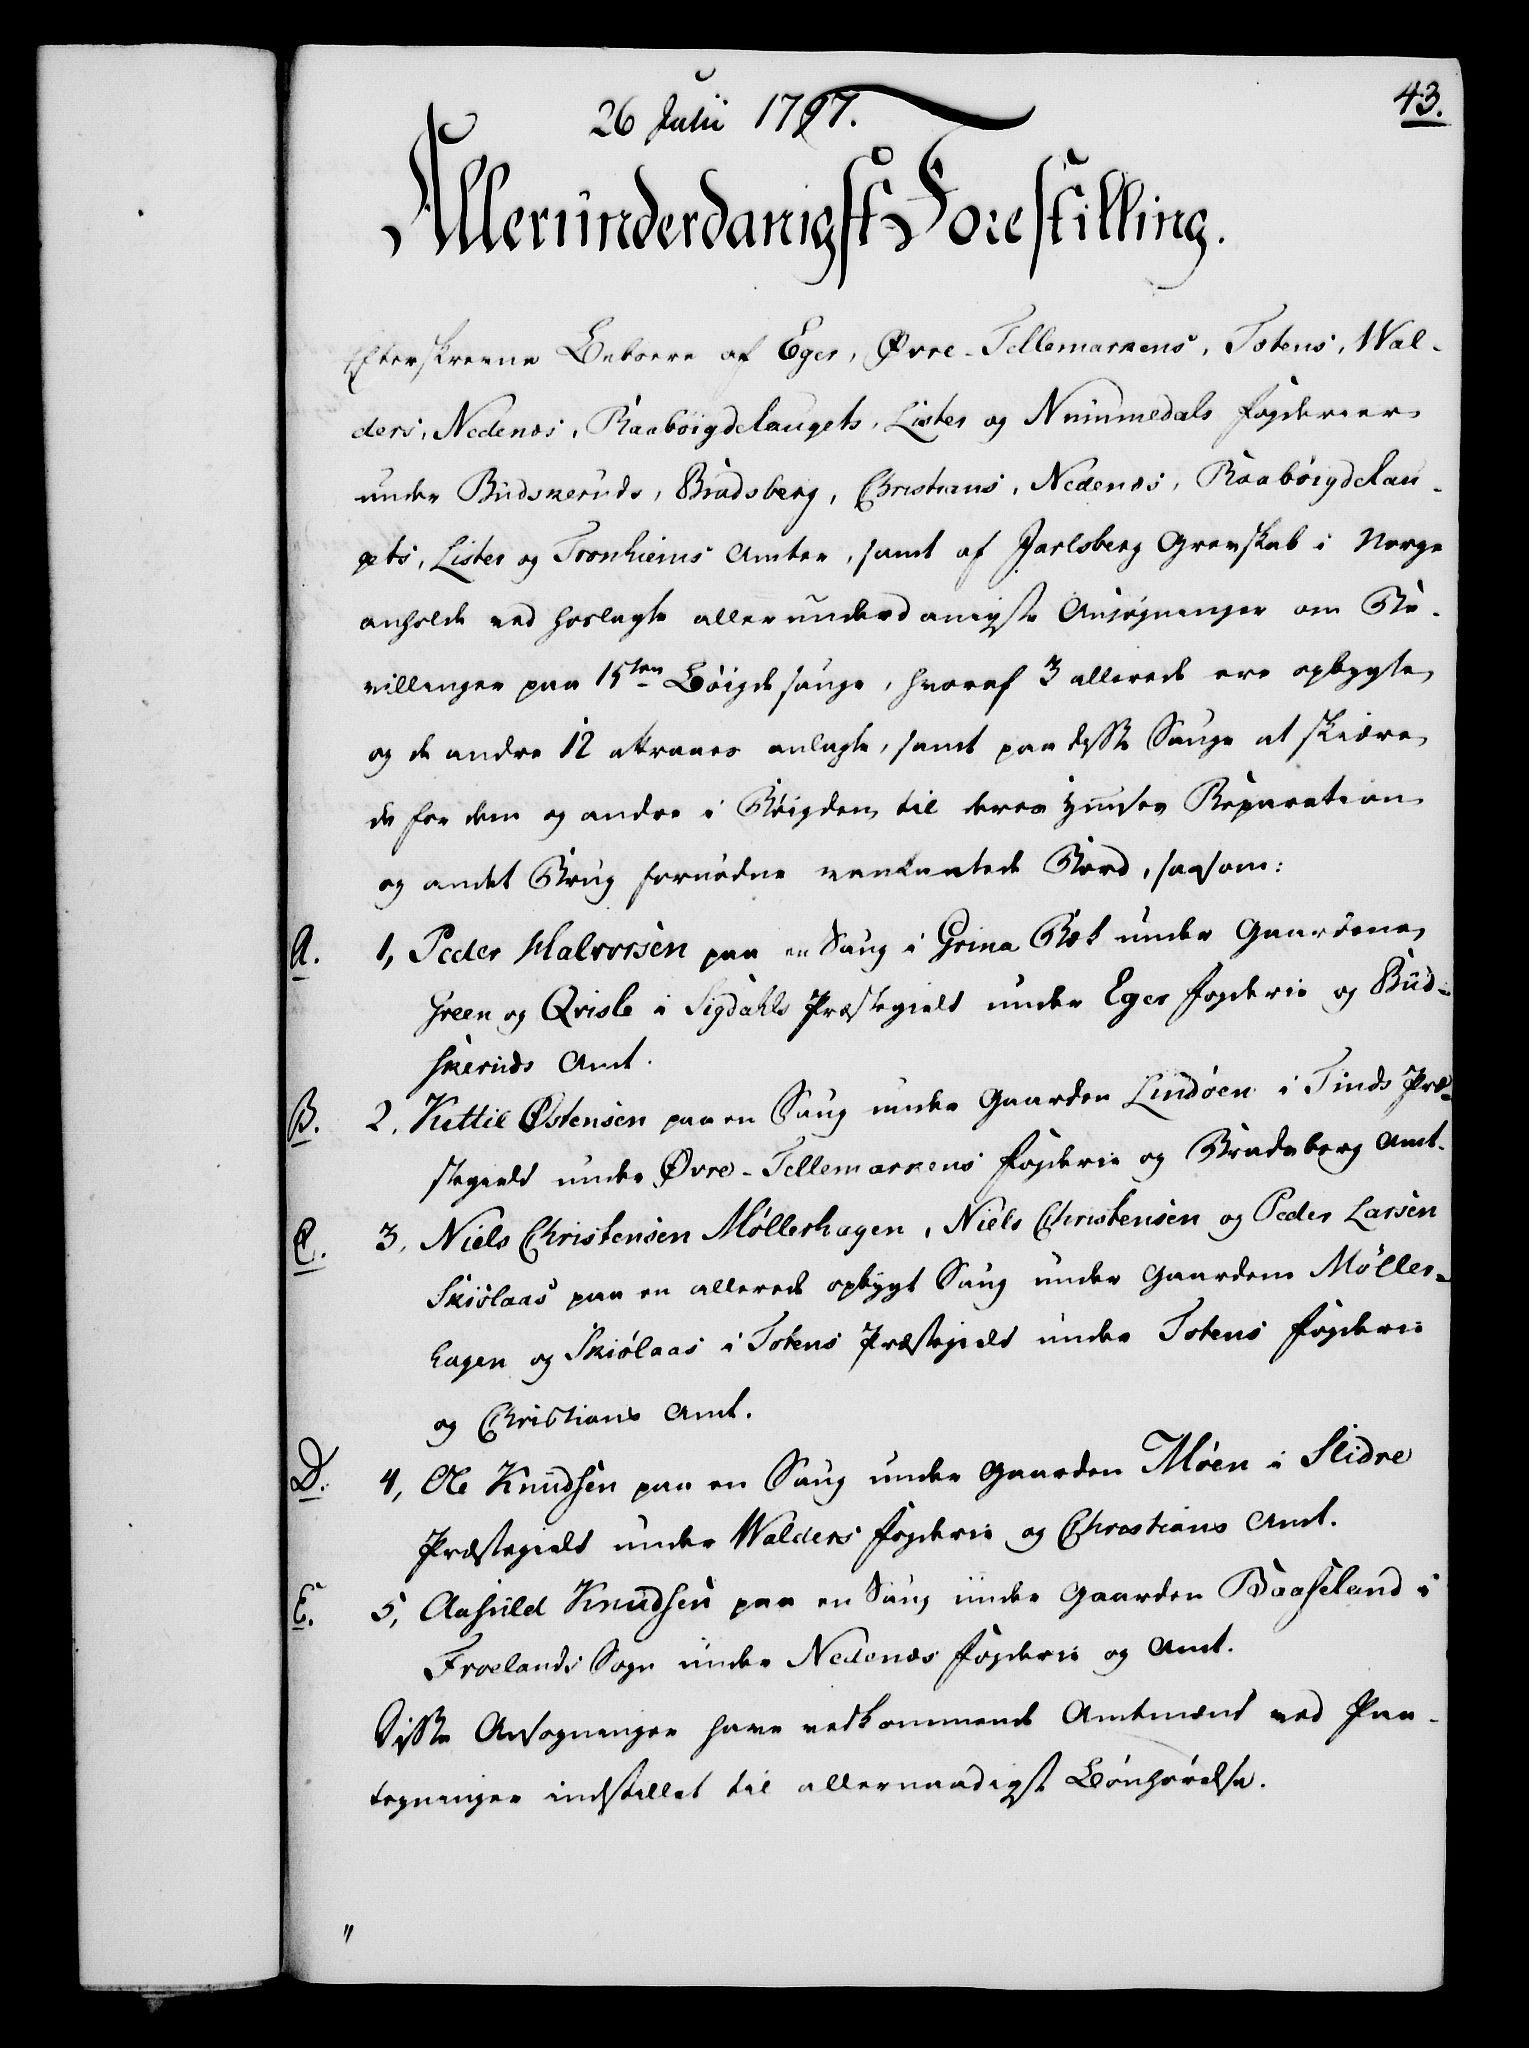 43.
26 Julii 1797.
Allerunderdanigst Forestilling.
Efterskrevne Beboere af Eger, Øvre-Tellemarkens, Totens, Wal-
ders, Nedenæs, Raabøigdelaugets, Lister og Nummedals Fogderier
under Budskeruds, Bradsberg, Christians, Nedenæs, Raabøigdelau-
gets, Lister og Tronhiems Amter, samt af Jarlsberg Grevskab i Norge
anholde ved hoslagte allerunderdanigste Ansøgninger om Be-
villinger paa 15ten Bøigdesauge, hvoraf 3 allerede ere opbygte,
og de andre 12 attraaes anlagte, samt paa disse Sauge at skiære
de for dem og andre i Bøigden til deres Huuses Reparation
og andet Brug fornødne vankantede Bord, saasom:
A. 1, Peder Halvorsen paa en Saug i Grina Bæk under Gaardene
Green og Qvisle i Sigdahls Præstegield under Eger Fogderie og Bud-
skeruds Amt.
B. 2, Kittil Østensen paa en Saug under Gaarden Lindøen i Tinds Præ-
stegield under Øvre-Tellemarkens Fogderie og Bradsberg Amt.
C. 3, Niels Christensen Møllerhagen, Niels Christensen og Peder Larsen
Skiølaas paa en allerede opbygt Saug under Gaardene Møller-
hagen og Skiølaas i Totens Præstegield under Totens Fogderie
og Christians Amt.
D. 4, Ole Knudsen paa en Saug under Gaarden Møen i Slidre
Præstegield under Walders Fogderie og Christians Amt.
E. 5, Aasuld Knudsen paa en Saug under Gaarden Baaseland i
Froelands Sogn under Nedenæs Fogderie og Amt.
Disse Ansøgninger have vedkommende Amtmænd ved Paa-
tegninger indstillet til allernaadigst Bønhørelse.
"